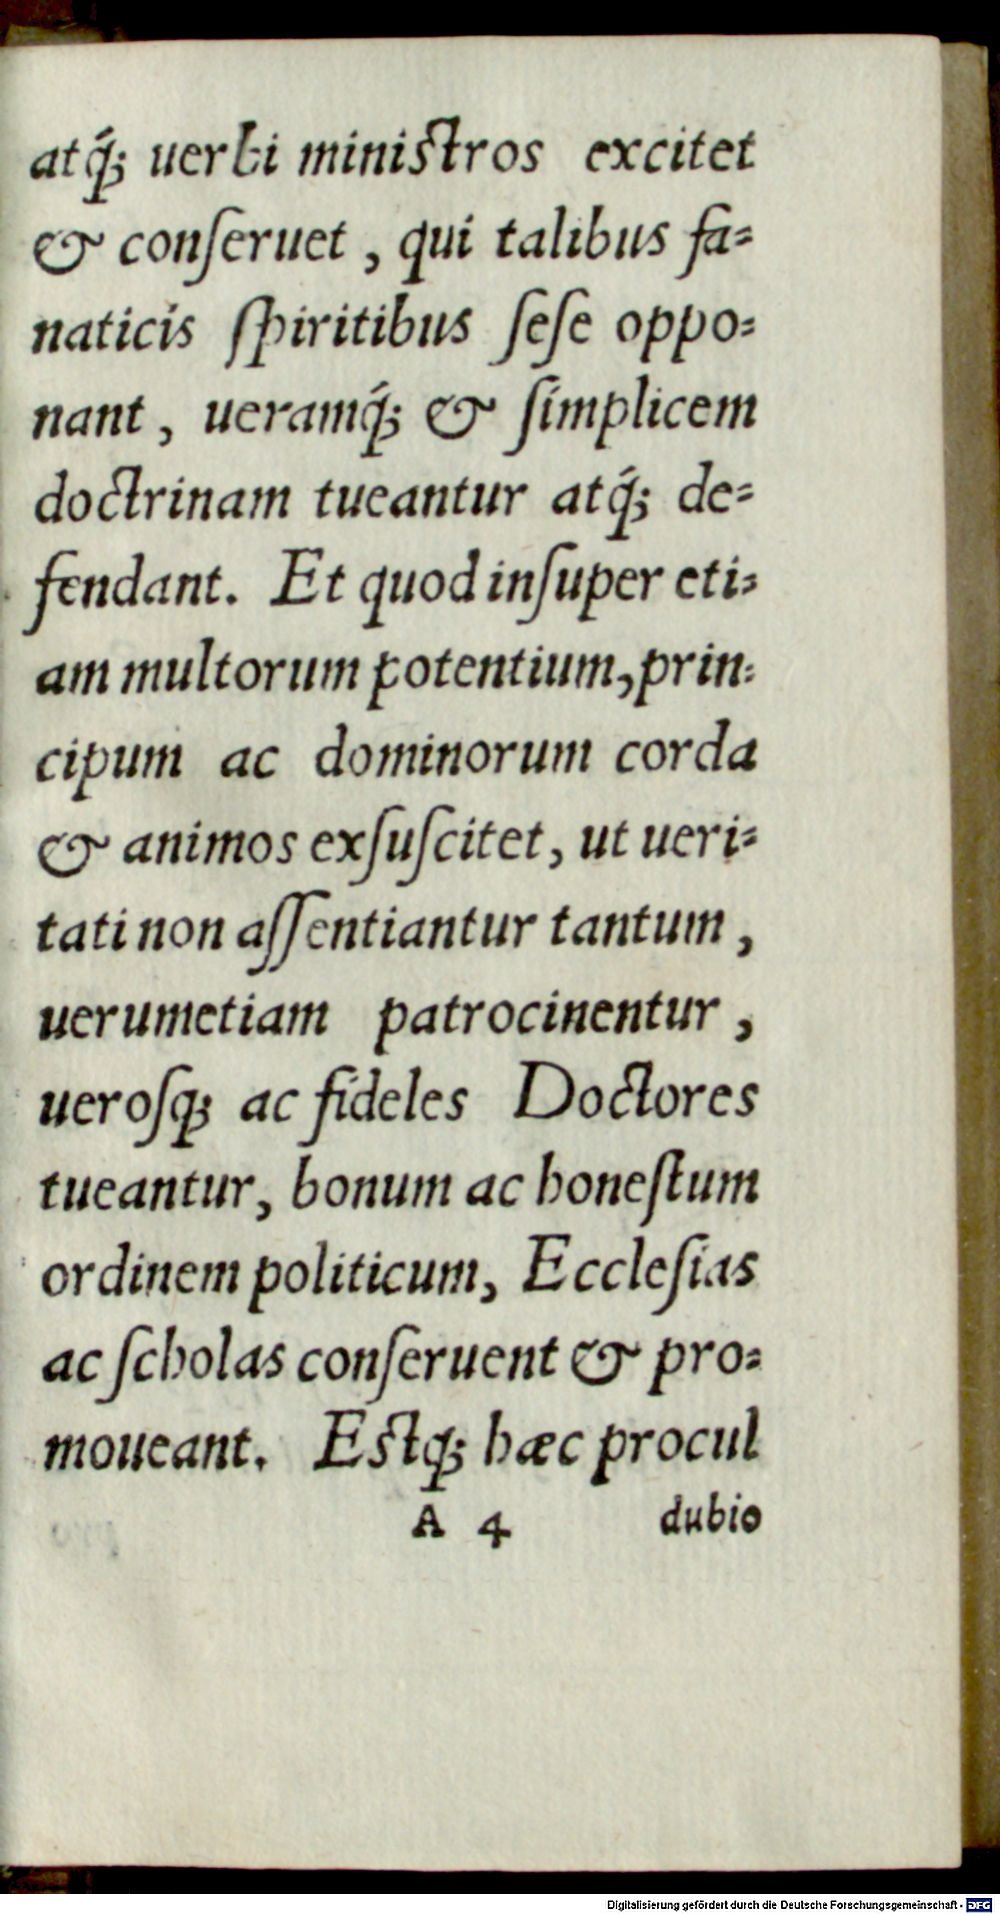 atq́; uerbi ministros excitet
& conſeruet, qui talibus fa⸗
naticis ſpiritibus ſeſe oppo⸗
nant, ueramq́; & ſimplicem
doctrinam tueantur atq́; de⸗
fendant. Et quod inſuper eti⸗
am multorum potentium, prin⸗
cipum ac dominorum corda
& animos exſuſcitet, ut ueri⸗
tati non aſſentiantur tantum,
uerumetiam patrocinentur,
ueroſq; ac fideles Doctores
tueantur, bonum ac honeſtum
ordinem politicum, Eccleſias
ac ſcholas conſeruent & pro⸗
moueant. Estq; hæc procul
A 4 dubio
Digitalisierung gefördert durch die Deutsche Forschungsgemeinschaft - DFG